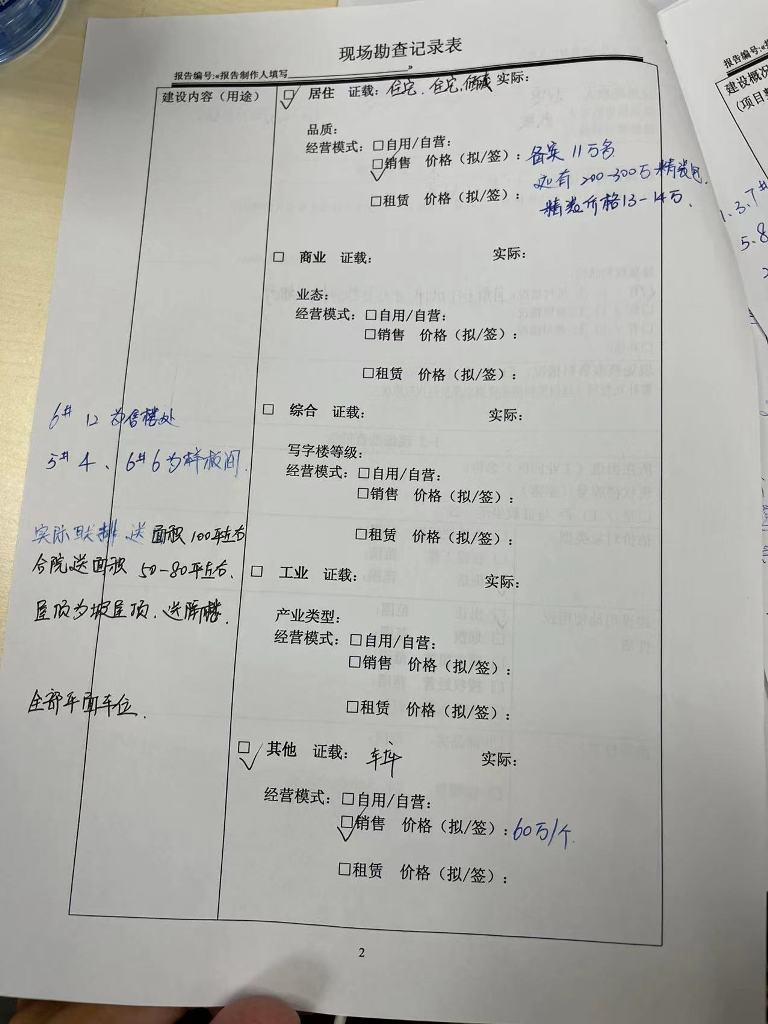 现场勘查记录表
报告编号:«报告制作人填写 »
建设内容（用途）
□ 居住 证载：住宅、住宅, 实际：
品质：
经营模式：□自用/自营：
□销售 价格（拟/签）：备案 11万多
还有 200-300万精装包.
□租赁 价格（拟/签）：精装价格13-14万.
□ 商业 证载： 实际：
业态：
经营模式：□自用/自营：
□销售 价格（拟/签）：
□租赁 价格（拟/签）：
6# 12 为售楼处
□ 综合 证载： 实际：
5# 4、6# 6为样板间.
写字楼等级：
经营模式：□自用/自营：
□销售 价格（拟/签）：
实际联排送面积100平左右
□租赁 价格（拟/签）：
合院送面积 50-80平左右.
□ 工业 证载： 实际：
屋顶为坡屋顶. 送阁楼.
产业类型：
经营模式：□自用/自营：
□销售 价格（拟/签）：
全部平面车位.
□租赁 价格（拟/签）：
□ 其他 证载：车库 实际：
经营模式：□自用/自营：
□销售 价格（拟/签）：60万/个
□租赁 价格（拟/签）：
2
报告编号:«报
建设概况
(项目
1.3.7#
5.8